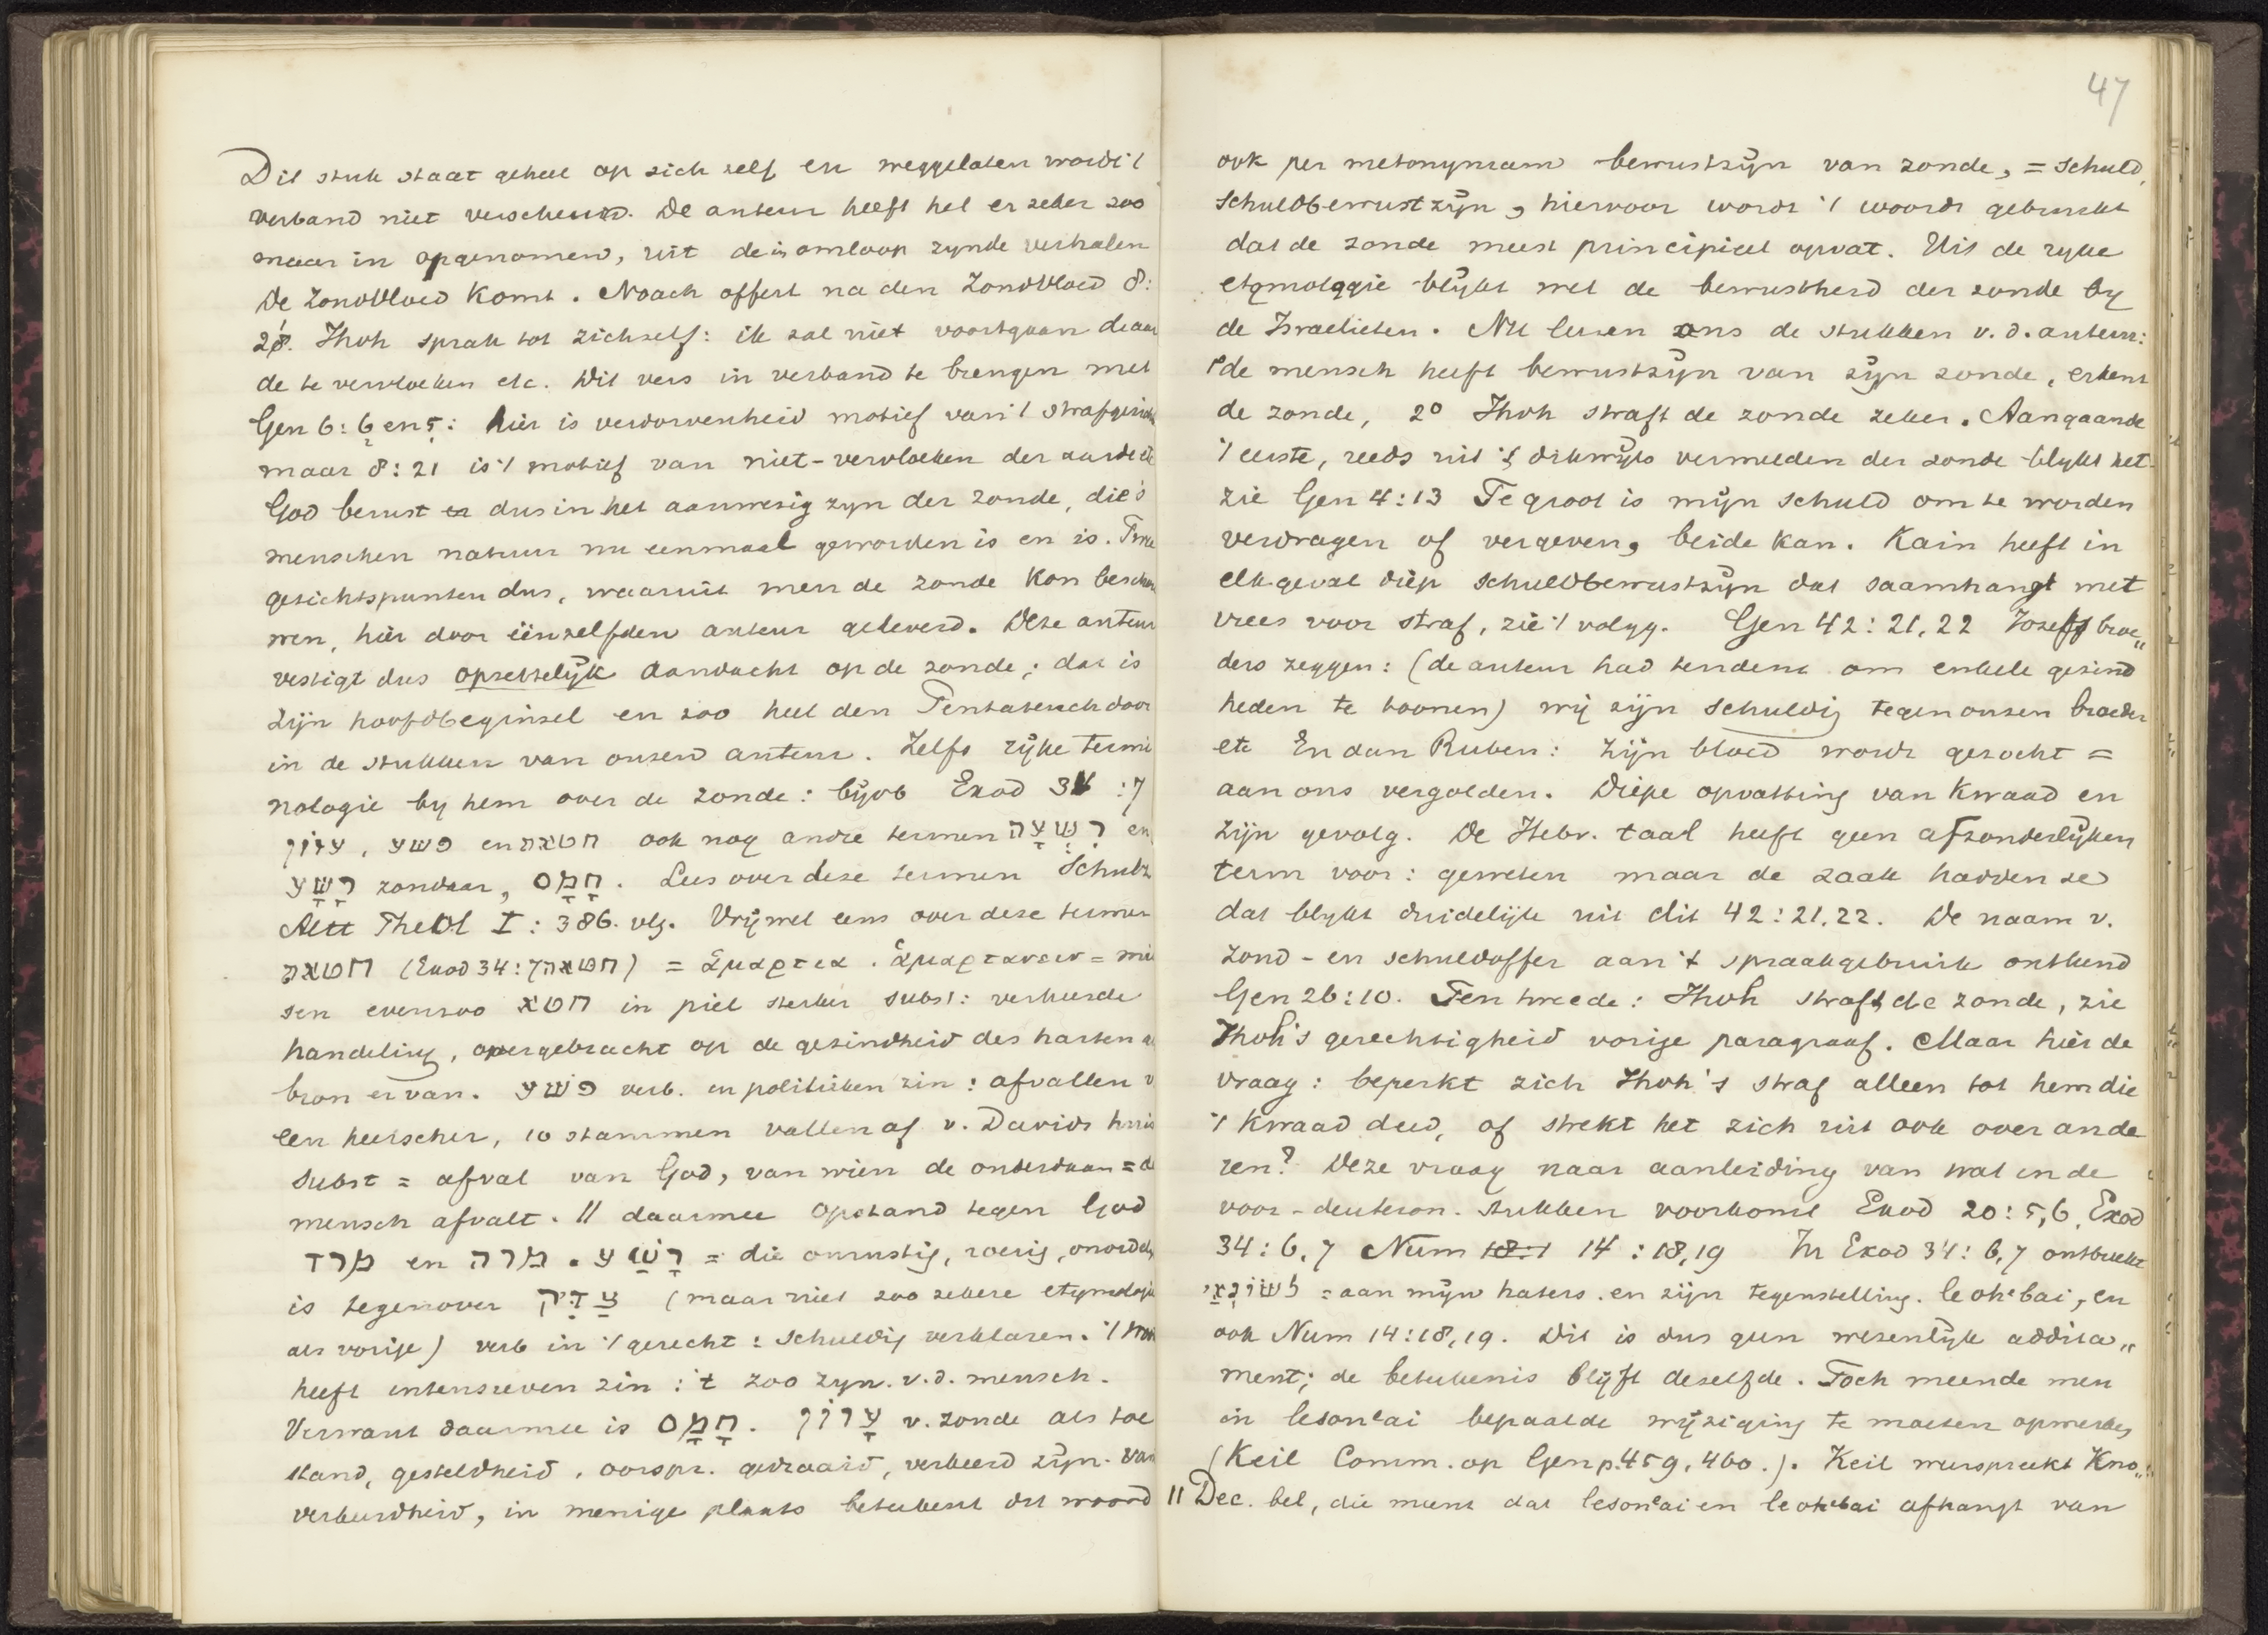 Dit stuk staat geheel op zich zelf en weggelaten wordt 't
verband niet verscheurd. De auteur heeft het er zeker zoo
maar in opgenomen, uit de in omloop zynde verhalen
De Zondvloed komt. Noach offert na den Zondvloed 8:
21. Jhvh sprak tot zichzelf: ik zal niet voortgaan de aar
de te vervloeken etc. Dit vers in verband te brengen met
Gen 6:6 en 5: hier is verdorvenheid motief van 't strafgericht
maar 8:21 is 't motief van niet-vervloeken der aarde etc
God berust dus in het aanwezig zyn der zonde, die 's
menschen natuur nu eenmaal geworden is en is. Twee
gezichtspunten dus, waaruit men de zonde kon beschou
wen, hier door éénzelfden auteur geleverd. Deze auteur
vestigt dus opzettelijk aandacht op de zonde; dat is
zijn hoofdbeginsel en zoo heel den Pentateuch door
in de stukken van onzen auteur. Zelfs rijke termi
nologie by hem over de zonde: bijvb Exod 34:7
עוון, פשע en חטאה ook nog andre termen רִשְׁעָה en
רָשָׁע zondaar, חָמָס. Lees over deze termen Schultz
Altt Theol I: 386. vlg. Vrijwel eens over deze termen
חטאה (Exod 34:7 חטאה) = ἁμαρτια. ἁμαρτανειν = mis
sen evenzoo חטא in piel sterker subst: verkeerde
handeling, overgebracht op de gezindheid des harten als
bron ervan. פשע verb. in politieken zin: afvallen v
een heerscher, 10 stammen vallen af v. Davids huis
Subst = afval van God, van wien de onderdaan = de
mensch afvalt. // daarmee opstand tegen God
מרד en מרה. רָשַׁע = die onrustig, roerig, onordelyk
is tegenover צַדִּיק (maar niet zoo zekere etymologie
als vorige) verb in 't gerecht: schuldig verklaren. 't
heeft intensieven zin: 't zoo zyn. v.d. mensch.
Verwant daarmee is חָמָס. עָווֹן v. zonde als toe
stand, gesteldheid, oorspr. gedraaid, verkeerd zijn. van
verkeerdheid, in menige plaats beteekent dit woord
47
ook per metonymiam bewustzijn van zonde, = schuld,
schuldbewustzijn, hiervoor wordt 't woord gebruikt
dat de zonde meest principieel opvat. Uit de ryke
etymologie blykt wel de bewustheid der zonde by
de Israelieten. Nu leeren ons de stukken v.d. auteur:
1º de mensch heeft bewustzijn van zijn zonde, erkent
de zonde, 2º Jhvh straft de zonde zeker. Aangaande
't eerste, reeds uit 't dikwijls vermelden der zonde blykt het
zie Gen 4:13 Te groot is mijn schuld om te worden
verdragen of vergeven, beide kan. Kain heeft in
elk geval diep schuldbewustzijn dat saamhangt met
vrees voor straf, zie 't volgg. Gen 42:21,22 Jozefs broe„
ders zeggen: (de auteur had tendenz om enkele gezind
heden te toonen) wij zijn schuldig tegen onzen broeder
etc En dan Ruben: zijn bloed wordt gezocht =
aan ons vergolden. Diepe opvatting van kwaad en
zijn gevolg. De Hebr. taal heeft geen afzonderlijken
term voor: geweten maar de zaak hadden ze
dat blykt duidelijk uit dit 42:21,22. De naam v.
zond- en schuldoffer aan 't spraakgebruik ontleend
Gen 26:10. Ten tweede: Jhvh straft de zonde, zie
Jhvh's gerechtigheid vorige paragraaf. Maar hier de
vraag: beperkt zich Jhvh's straf alleen tot hem die
't kwaad deed, of strekt het zich uit ook over ande
ren? Deze vraag naar aanleiding van wat in de
voor-deuteron. stukken voorkomt Exod 20:5,6, Exod
34:6,7 Num 18:1 14:18,19 In Exod 34:6,7 ontbreekt
לשׂונאי = aan mijn haters. en zijn tegenstelling. leohebai, en
ook Num 14:18,19. Dit is dus geen wezenlijk addita„
ment; de beteekenis blijft dezelfde. Toch meende men
in lesonᵉai bepaalde wijziging te moeten opmerken
(Keil Comm. op Gen p. 459, 460.). Keil weerspreekt Kno„
11 Dec. bel, die meent dat lesonᵉai en leohᵉbai afhangt van